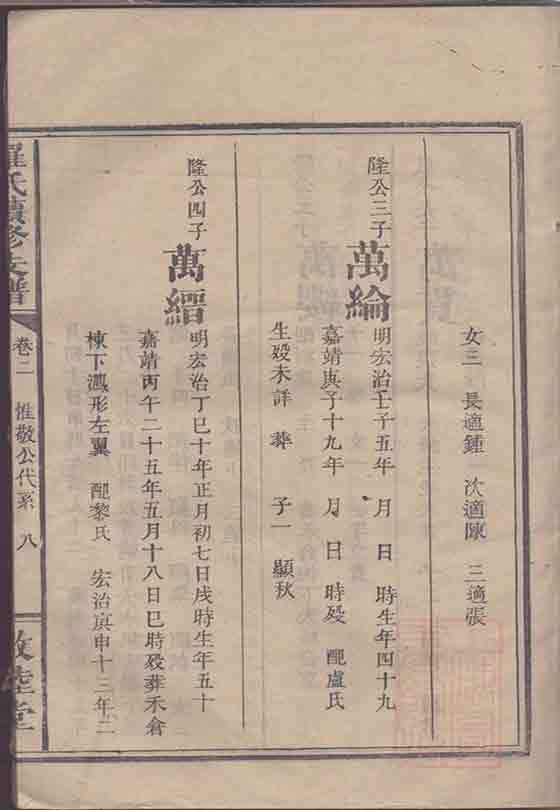 女三 長適鍾 次適陳 三適張
隆公三子
萬綸
明宏治壬子五年 月 日 時生年四十九
嘉靖庚子十九年 月 日 時殁 配盧氏
生殁未詳 葬 子一 顯秋
隆公四子
萬縉
明宏治丁巳十年正月初七日戌時生年五十
嘉靖丙午二十五年五月十八日巳時殁葬禾倉
棟下㵯形左翼 配黎氏 宏治庚申十三年二
羅氏續修支譜 卷二 惟敬公代系 八 敦睦堂